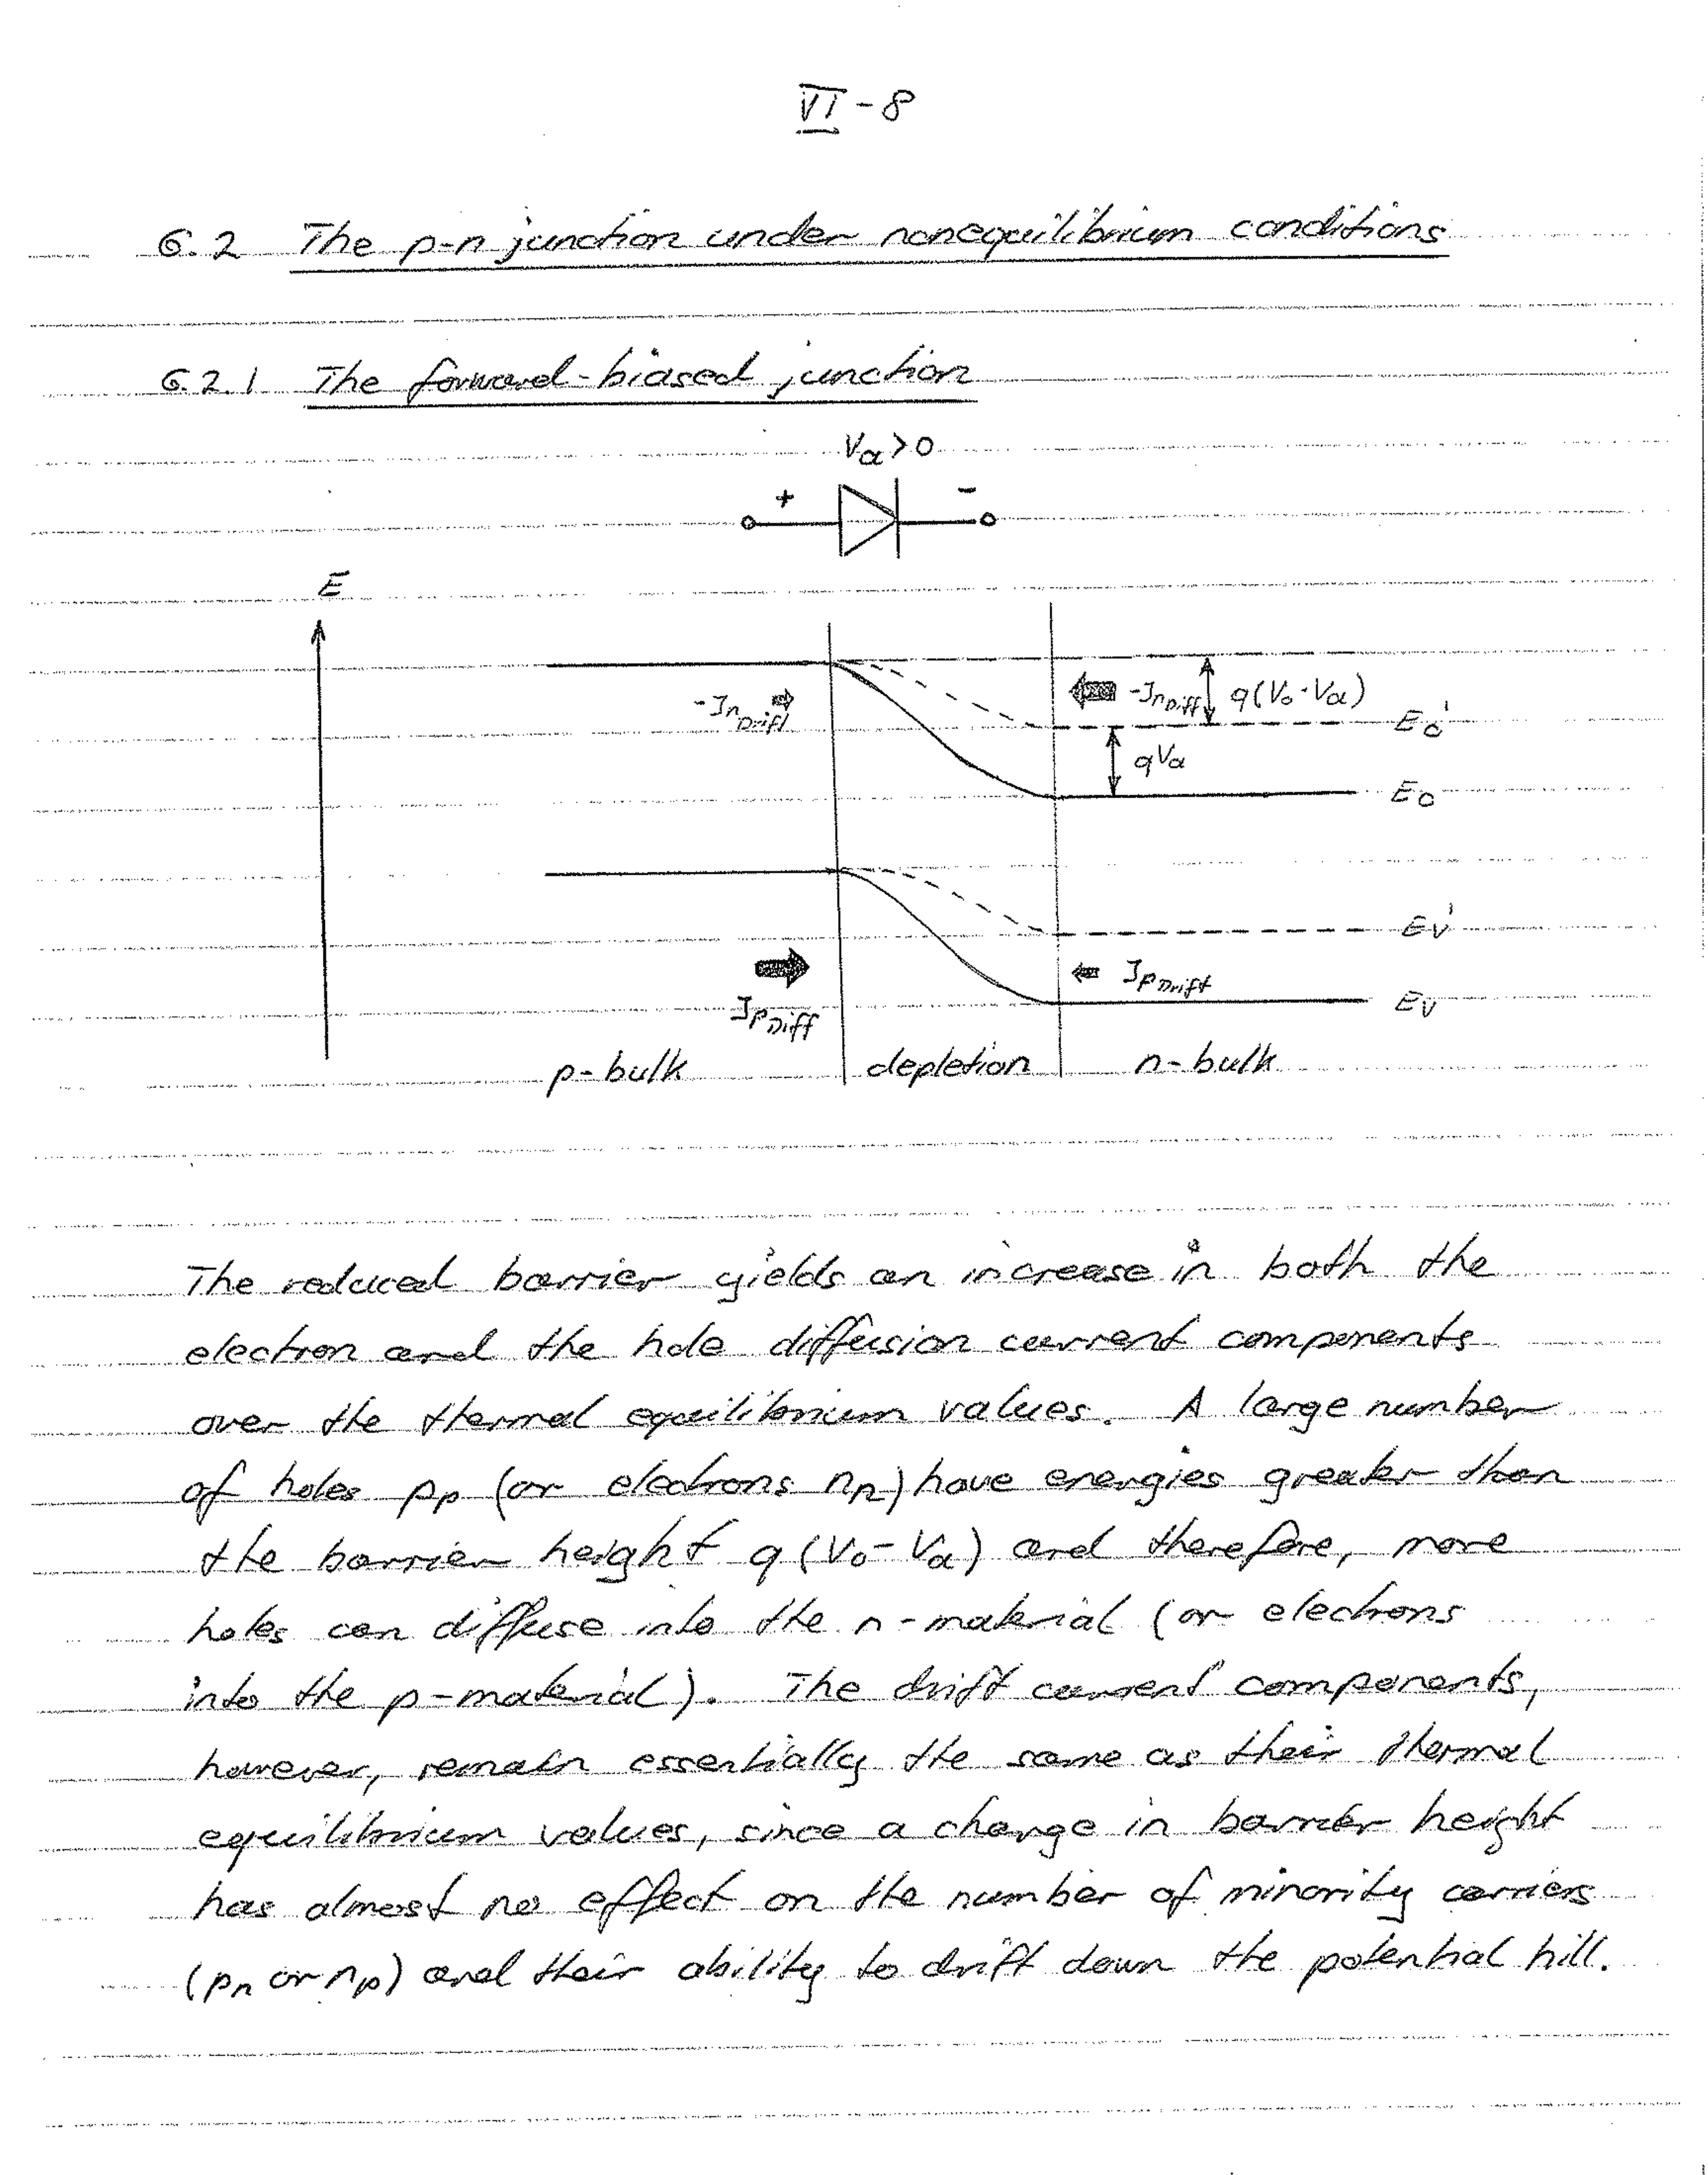 VI-8
6.2 The p-n junction under nonequilibrium conditions
6.2.1 The forward-biased junction
Va>0
+ -
E
-JnDrift
-JnDiff q(Vo-Va)
Ec'
qVa
Ec
Ev'
JpDrift
Ev
JpDiff
p-bulk depletion n-bulk
The reduced barrier yields an increase in both the
electron and the hole diffusion current components
over the thermal equilibrium values. A large number
of holes pp (or electrons nn) have energies greater than
the barrier height q(Vo-Va) and therefore, more
holes can diffuse into the n-material (or electrons
into the p-material). The drift current components,
however, remain essentially the same as their thermal
equilibrium values, since a change in barrier height
has almost no effect on the number of minority carriers
(pn or np) and their ability to drift down the potential hill.